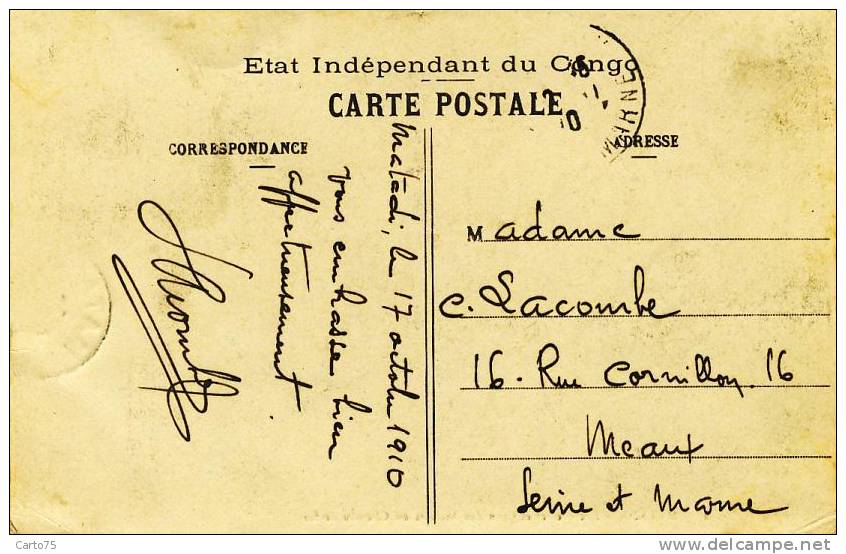 Etat Indépendant du Congo
CARTE POSTALE
CORRESPONDANCE
ADRESSE
Matadi, le 17 octobre 1910
vous embrasse bien
affectueusement.
Madame
C. Lacombe
16. Rue Cornillon. 16
Meaux
Seine et Marne
MARNE
Carto75
www.delcampe.net